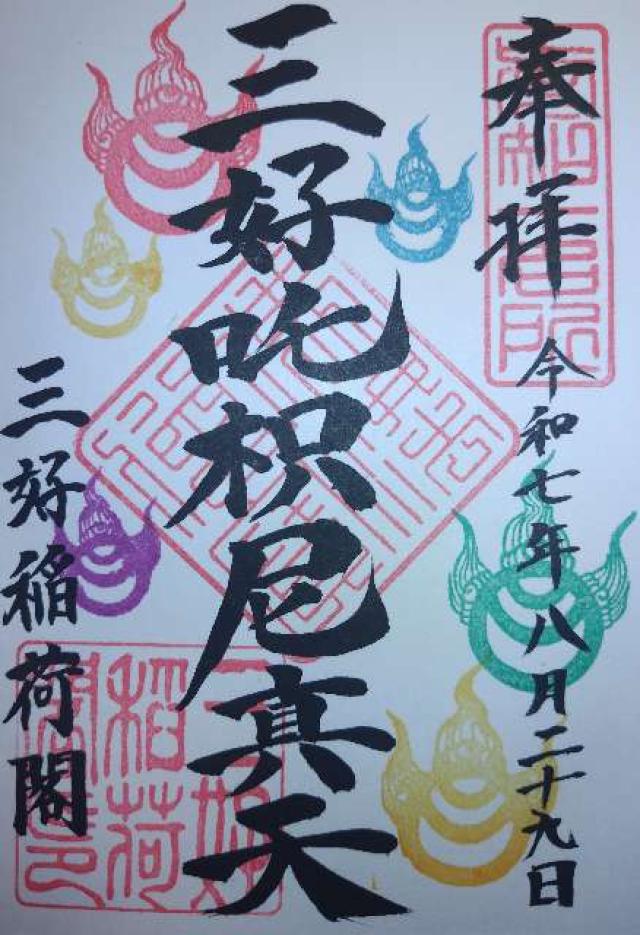 奉拝
令和七年八月二十九日
三好吒枳尼真天
三好稲荷閣
三好
稲荷
閣印